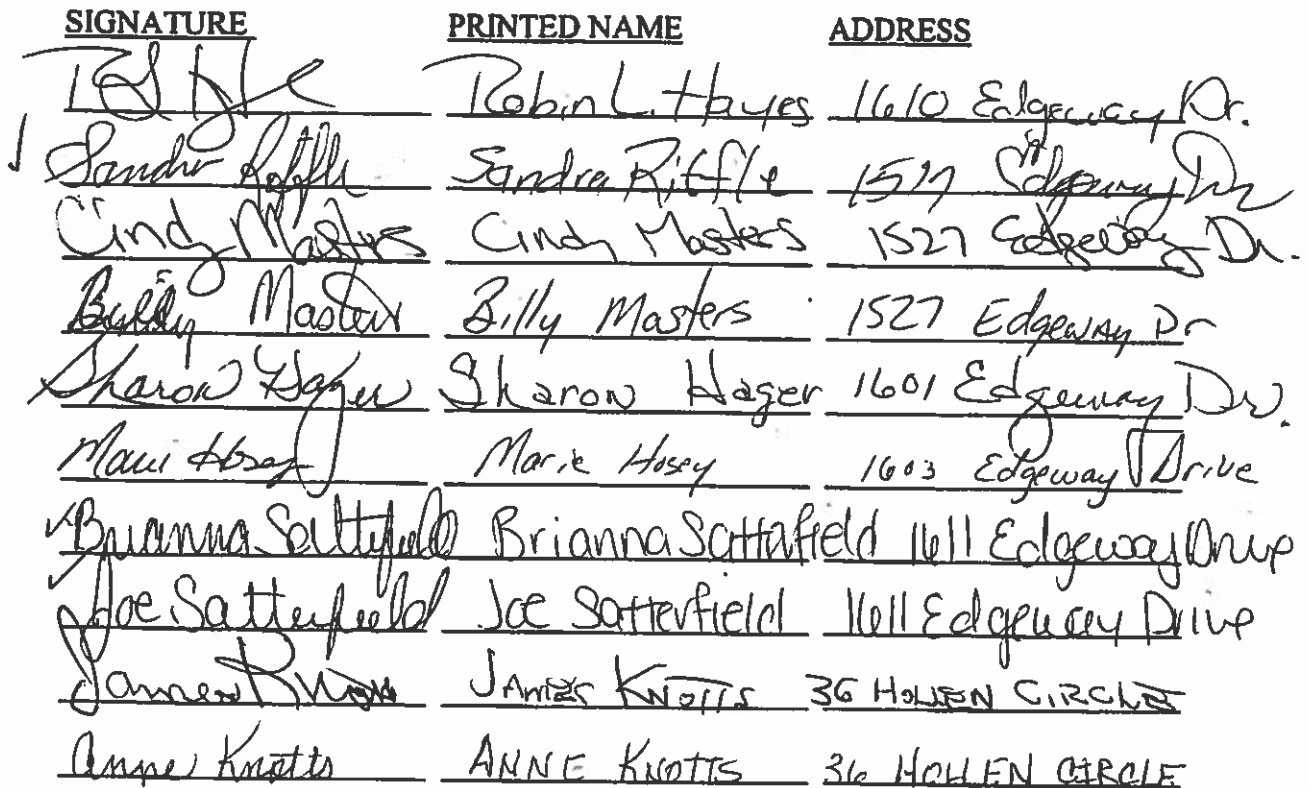 SIGNATURE PRINTED NAME ADDRESS
Robin L. Hayes 1610 Edgeway Dr.
Sandra Riffle Sandra Riffle Edgeway Dr
Cindy Masters Cindy Masters 1527 Edgeway Dr.
Billy Masters Billy Masters 1527 Edgeway Dr
Sharon Hager Sharon Hager 1601 Edgeway Dr.
Marie Hosey Marie Hosey 1603 Edgeway Drive
Brianna Satterfield Brianna Satterfield 1611 Edgeway Drive
Joe Satterfield Joe Satterfield 1611 Edgeway Drive
James Knotts JAMES KNOTTS 36 HOLLEN CIRCLE
Anne Knotts ANNE KNOTTS 36 HOLLEN CIRCLE